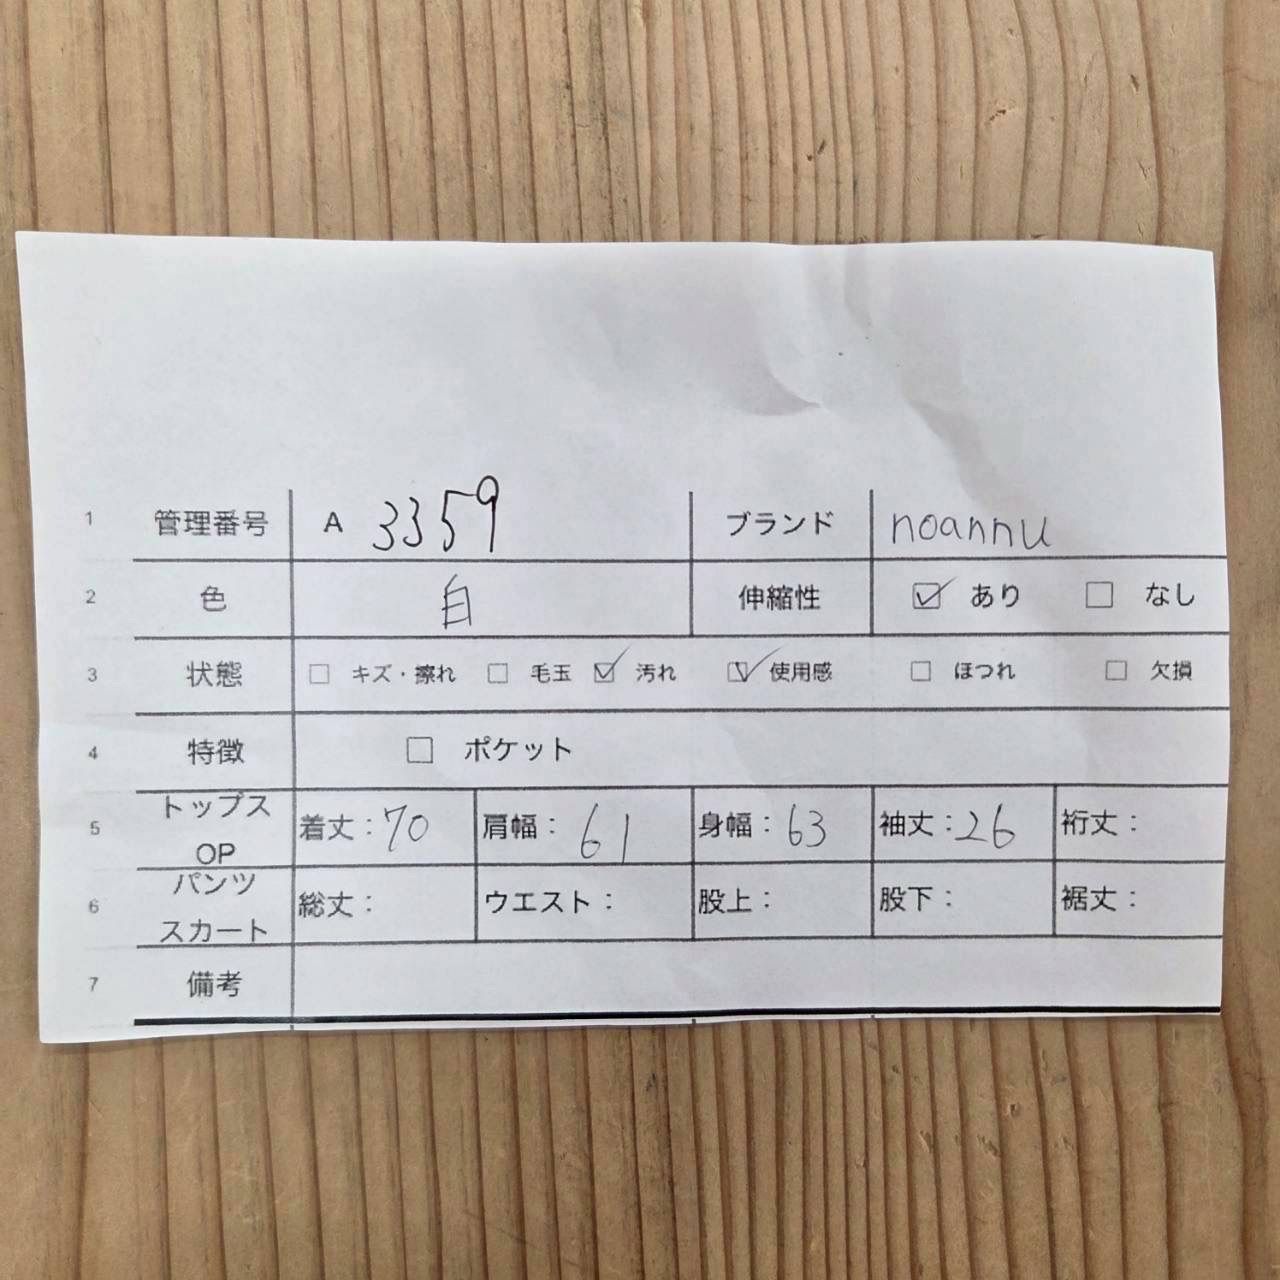 1 管理番号 A 3359 ブランド noannu
2 色 白 伸縮性 ☑ あり ☐ なし
3 状態 ☐ キズ・擦れ ☐ 毛玉 ☑ 汚れ ☑ 使用感 ☐ ほつれ ☐ 欠損
4 特徴 ☐ ポケット
5 トップス OP 着丈：70 肩幅：61 身幅：63 袖丈：26 裄丈：
6 パンツ スカート 総丈： ウエスト： 股上： 股下： 裾丈：
7 備考